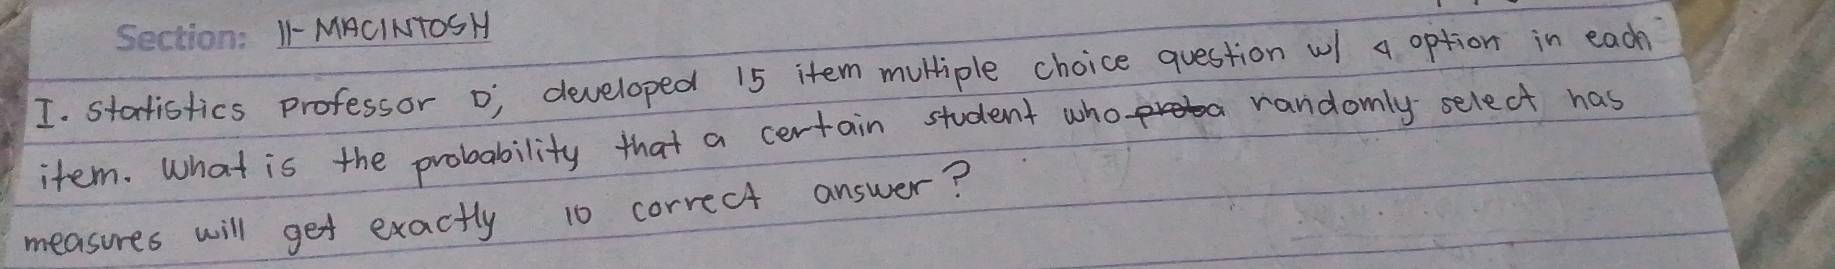 Section: 11- MACINTOSH
I. Statistics Professor D; developed 15 item multiple choice question w/ 4 option in each
item. What is the probability that a certain student who proba randomly select has
measures will get exactly 10 correct answer?